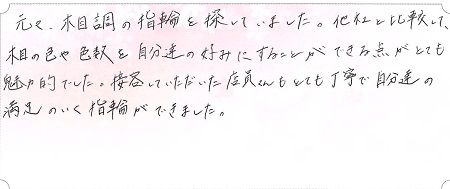 元々、木目調の指輪を探していました。他社と比較して、
木目の色や色数を自分達の好みにすることができる点がとても
魅力的でした。接客していただいた店員さんもとても丁寧で自分達の
満足のいく指輪ができました。